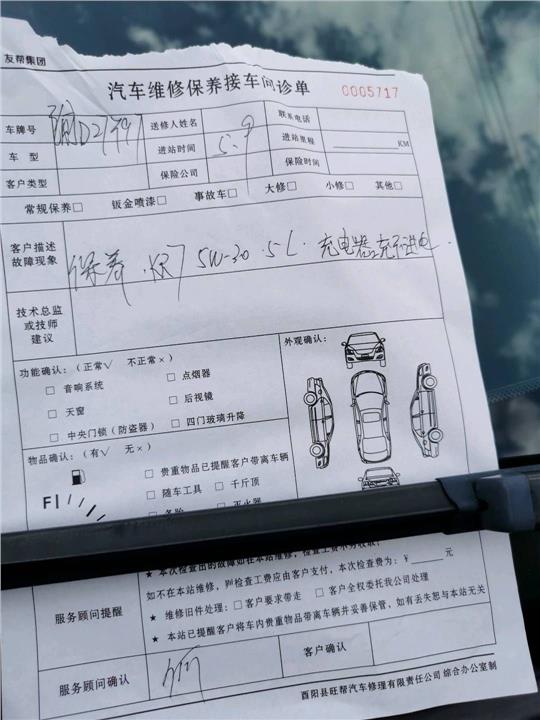 友帮集团
汽车维修保养接车问诊单 0005717
车牌号 送修人姓名 联系电话
车型 进站时间 5.9 进站里程 KM
客户类型 保险公司 保险时间
常规保养□ 钣金喷漆□ 事故车□ 大修□ 小修□ 其他□
客户描述
故障现象
保养 . KR7 5W-30 .5L. 充电器充不进电.
技术总监
或技师
建议
功能确认：（正常√ 不正常×） 外观确认：
□ 音响系统 □ 点烟器
□ 天窗 □ 后视镜
□ 中央门锁（防盗器） □ 四门玻璃升降
物品确认：（有√ 无×）
□ 贵重物品已提醒客户带离车辆
□ 随车工具 □ 千斤顶
F
服务顾问提醒
★ 本次检查出的故障如在本站维修，检查工费不另收取；
如不在本站维修，则检查工费应由客户支付，本次检查费为：¥ 元
★ 维修旧件处理：□ 客户要求带走 □ 客户全权委托我公司处理
★ 本站已提醒客户将车内贵重物品带离车辆并妥善保管，如有丢失恕与本站无关
服务顾问确认 客户确认
酉阳县旺帮汽车修理有限责任公司 综合办公室制